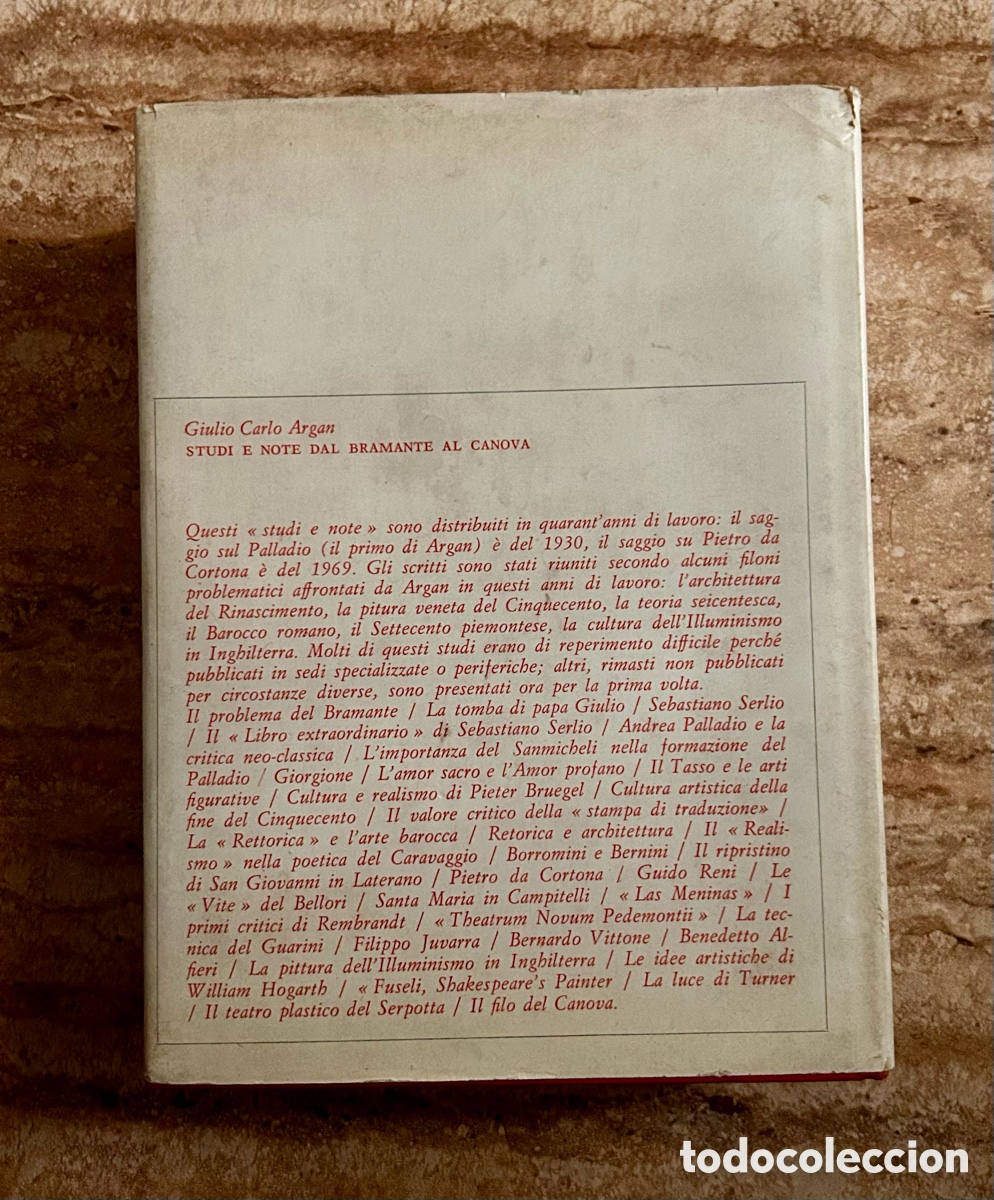 Giulio Carlo Argan
STUDI E NOTE DAL BRAMANTE AL CANOVA
Questi « studi e note » sono distribuiti in quarant'anni di lavoro: il sag-
gio sul Palladio (il primo di Argan) è del 1930, il saggio su Pietro da
Cortona è del 1969. Gli scritti sono stati riuniti secondo alcuni filoni
problematici affrontati da Argan in questi anni di lavoro: l'architettura
del Rinascimento, la pitura veneta del Cinquecento, la teoria seicentesca,
il Barocco romano, il Settecento piemontese, la cultura dell'Illuminismo
in Inghilterra. Molti di questi studi erano di reperimento difficile perché
pubblicati in sedi specializzate o periferiche; altri, rimasti non pubblicati
per circostanze diverse, sono presentati ora per la prima volta.
Il problema del Bramante / La tomba di papa Giulio / Sebastiano Serlio
/ Il « Libro extraordinario » di Sebastiano Serlio / Andrea Palladio e la
critica neo-classica / L'importanza del Sanmicheli nella formazione del
Palladio / Giorgione / L'amor sacro e l'Amor profano / Il Tasso e le arti
figurative / Cultura e realismo di Pieter Bruegel / Cultura artistica della
fine del Cinquecento / Il valore critico della « stampa di traduzione» /
La « Rettorica » e l'arte barocca / Retorica e architettura / Il « Reali-
smo » nella poetica del Caravaggio / Borromini e Bernini / Il ripristino
di San Giovanni in Laterano / Pietro da Cortona / Guido Reni / Le
« Vite » del Bellori / Santa Maria in Campitelli / « Las Meninas » / I
primi critici di Rembrandt / « Theatrum Novum Pedemontii » / La tec-
nica del Guarini / Filippo Juvarra / Bernardo Vittone / Benedetto Al-
fieri / La pittura dell'Illuminismo in Inghilterra / Le idee artistiche di
William Hogarth / « Fuseli, Shakespeare's Painter / La luce di Turner
/ Il teatro plastico del Serpotta / Il filo del Canova.
todocoleccion